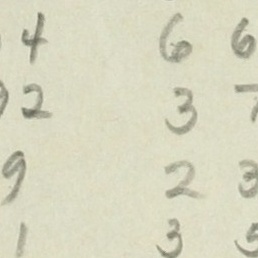 4 6 6
2 3 7
9 2 3
1 3 5